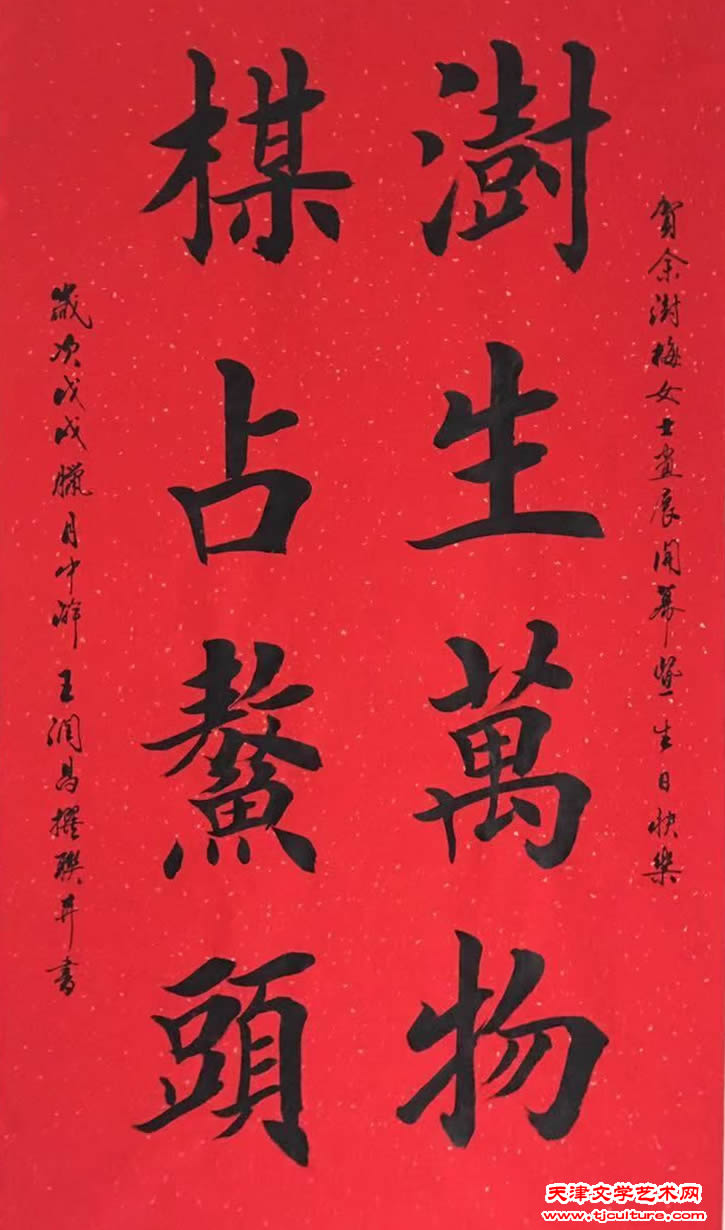 賀余澍梅女士畫展開幕暨生日快樂
澍生萬物
楳占鰲頭
歲次戊戌臘月中澣王潤昌撰聯并書
天津文学艺术网
www.tjculture.com